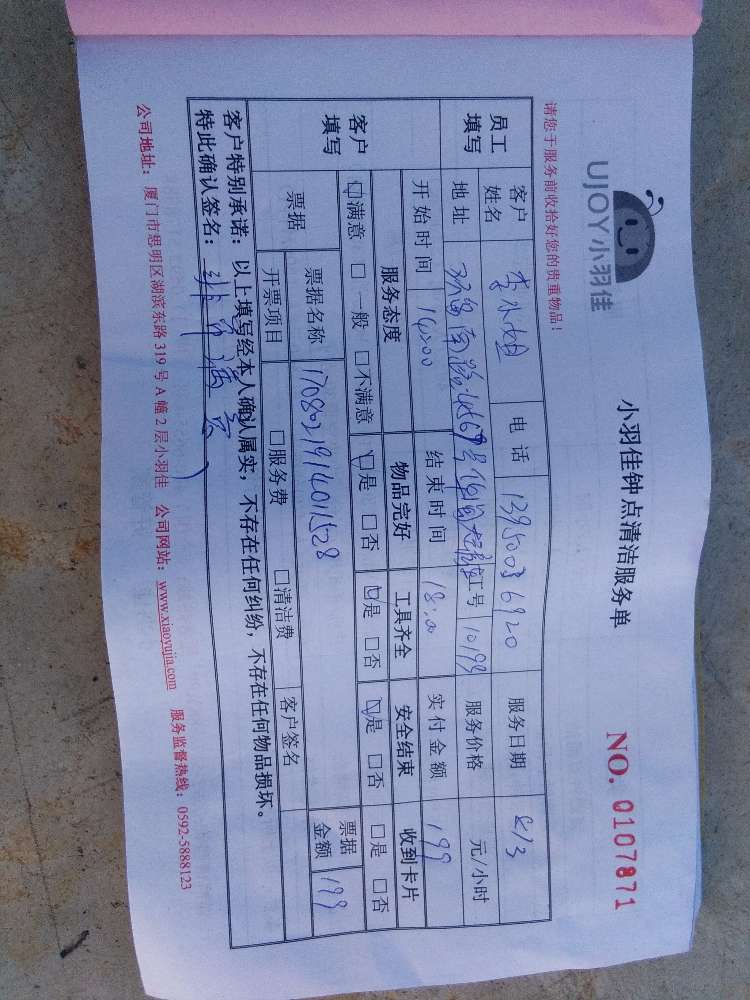 UJOY小羽佳
小羽佳钟点清洁服务单
NO. 0107871
请您于服务前收拾好您的贵重物品!
员工填写 客户姓名 李 姐 电话 13950036920 服务日期 8/3
地址 环岛南路 号 工号 10199 服务价格 元/小时
开始时间 14:00 结束时间 18:00 实付金额 199
客户填写 服务态度 物品完好 工具齐全 安全结束 收到卡片
☑满意 □一般 □不满意 ☑是 □否 ☑是 □否 ☑是 □否 □是 □否
票据 票据名称 1708621914011528 票据金额 199
开票项目 □服务费 □清洁费 客户签名
客户特别承诺:以上填写经本人确认属实,不存在任何纠纷,不存在任何物品损坏。
特此确认签名:
公司地址:厦门市思明区湖滨东路 319 号 A 幢 2 层小羽佳 公司网站:www.xiaoyujia.com 服务监督热线:0592-5888123